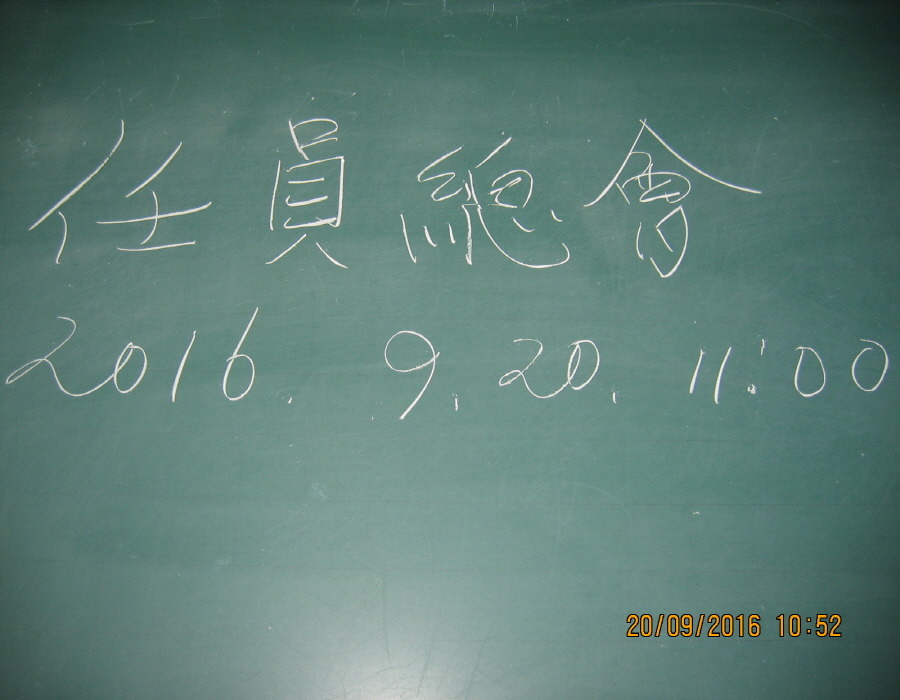 任員總會
2016. 9. 20. 11:00
20/09/2016 10:52